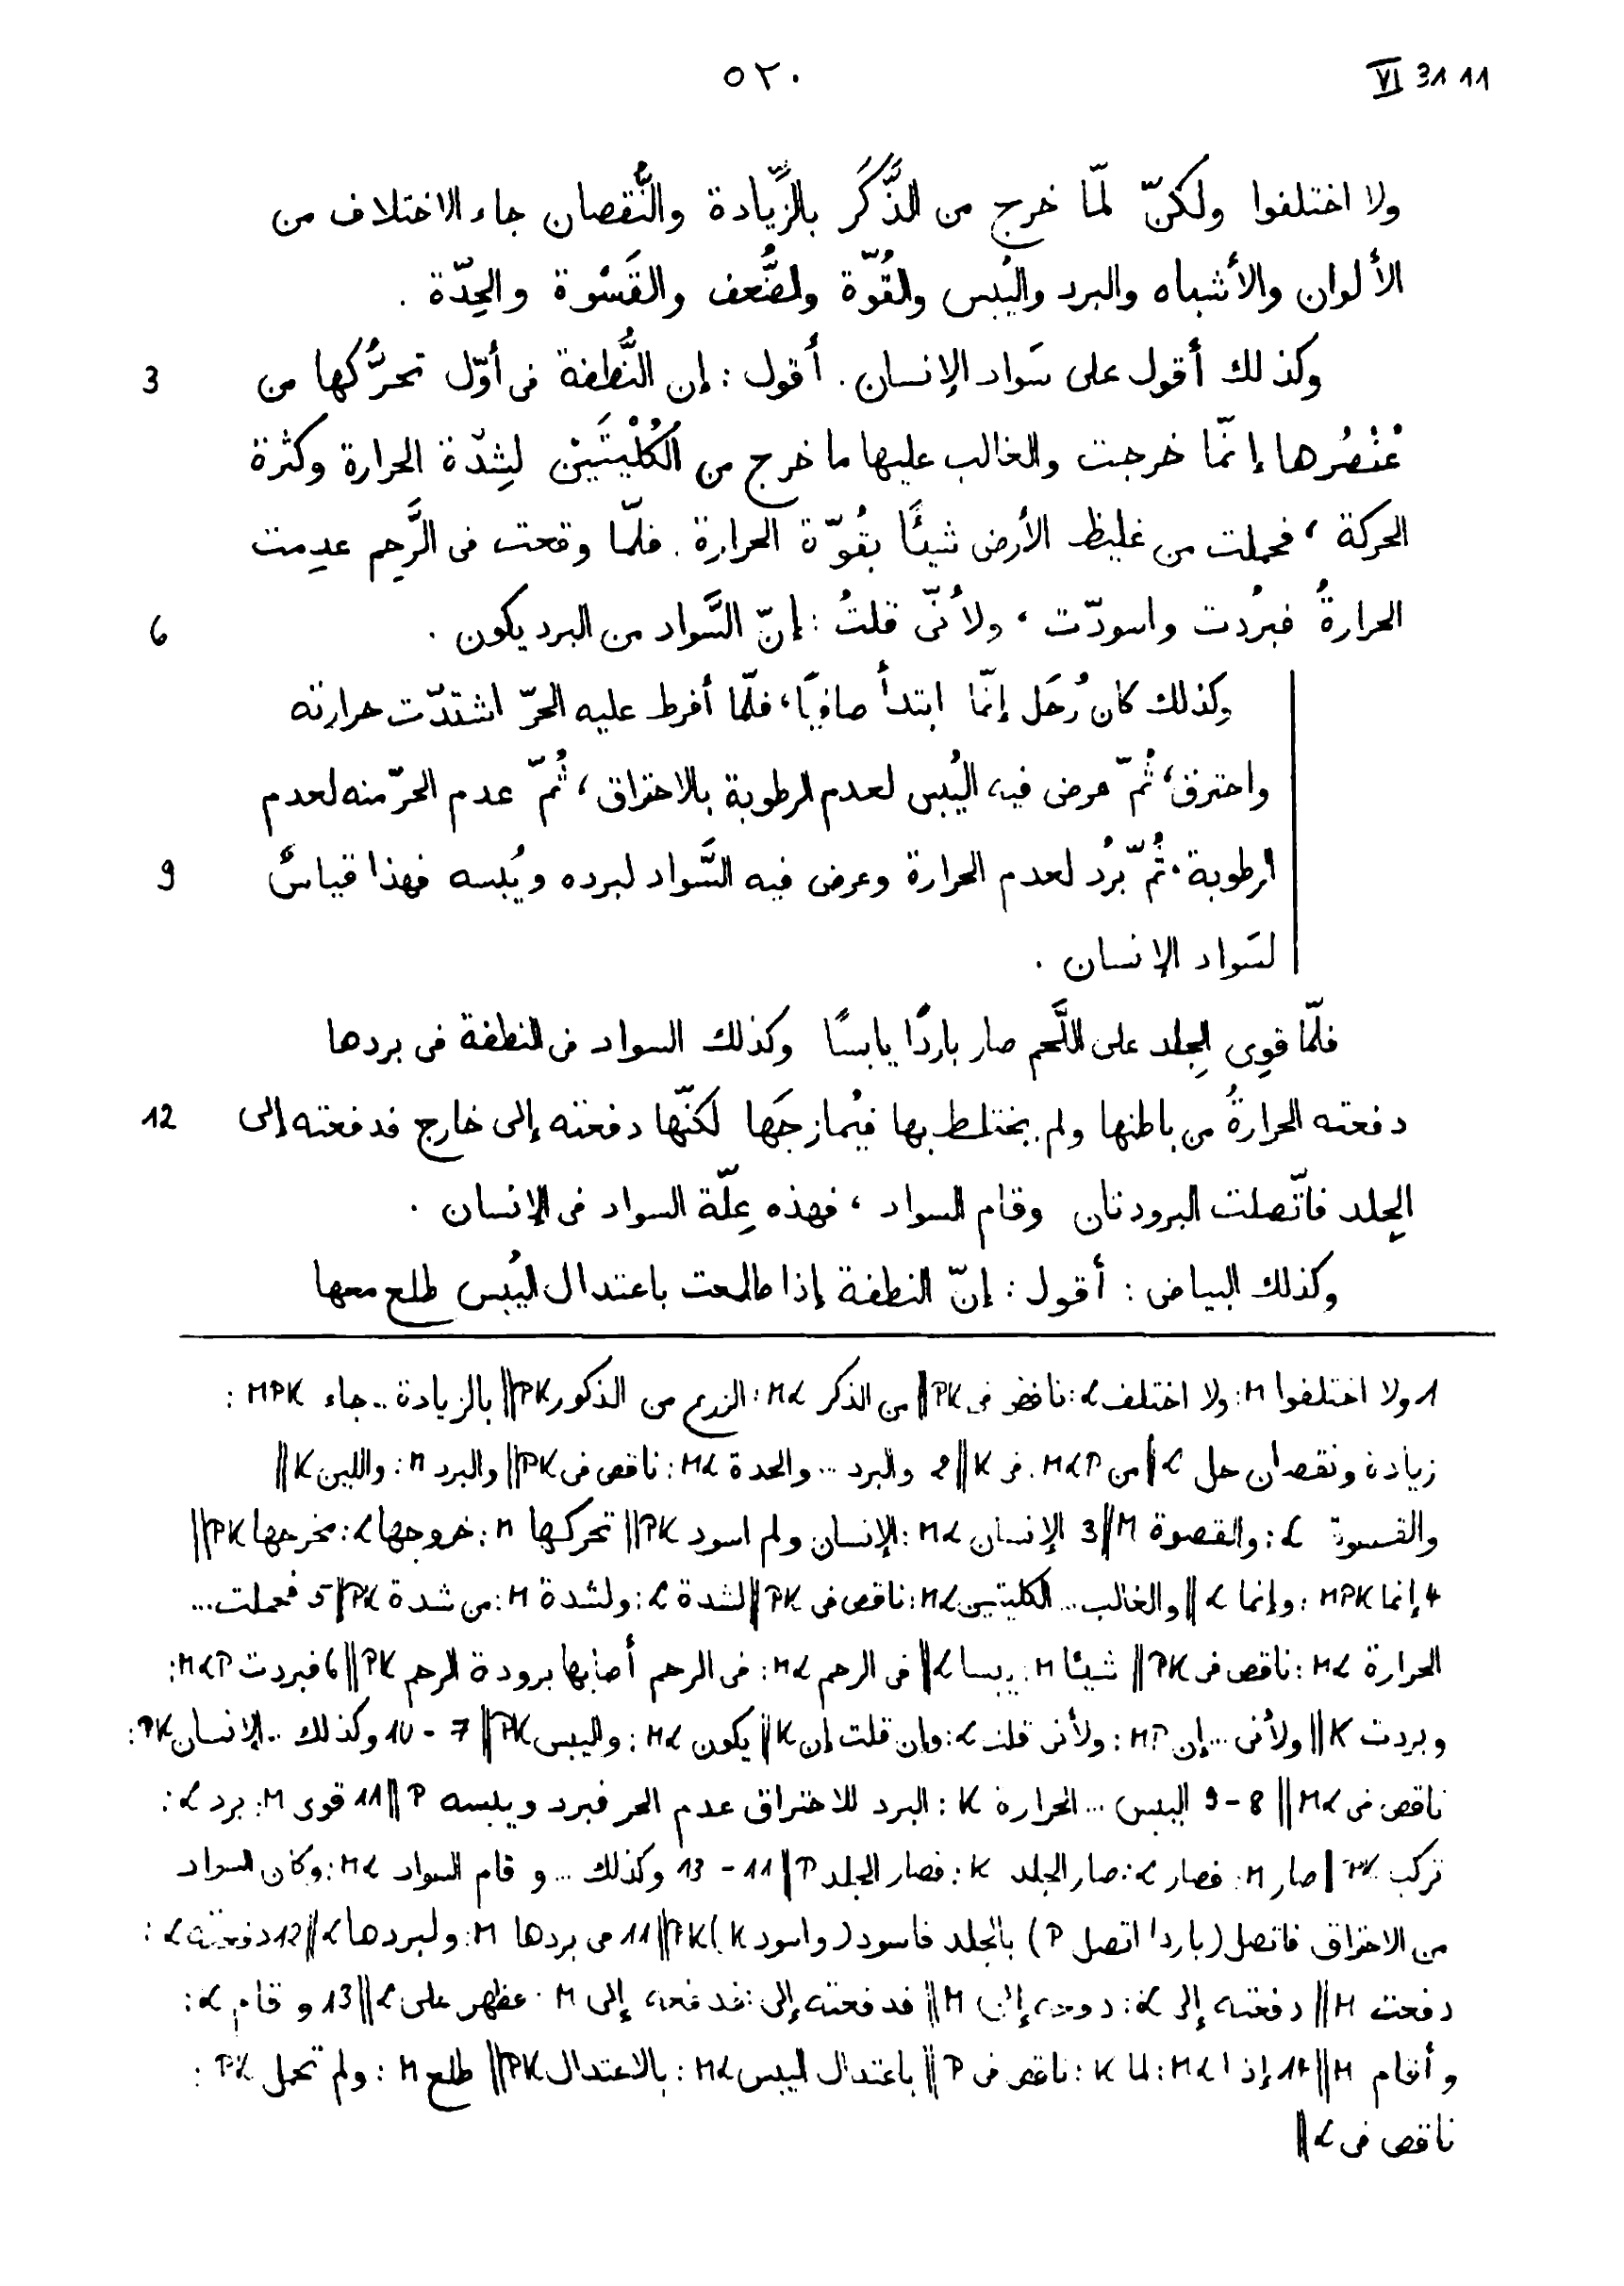 ٥٢٠ VI 31 11
ولا اختلفوا ولكنّ لمّا خرج من الذَّكَر بالزِّيادة والنُّقصان جاء الاختلاف من
الألوان والأشباه والبرد واليُبس والقُوّة والضُّعف والقَسْوة والحِدّة .
وكذلك أقول على سَواد الإنسان . أقول : إن النُّطفة فى أوّل تحرُّكها من 3
عُنْصُرها إنّما خرجت والغالب عليها ما خرج من الكُلْيتَيْن لِشِدّة الحرارة وكثرة
الحركة ، فحملت من غليظ الأرض شيئًا بقُوّة الحرارة . فلمّا وقعت فى الرَّحِم عدِمت
الحرارةُ فبرُدت واسودّت ، ولأنّى قلتُ : إنّ السَّواد من البرد يكون . 6
وكذلك كان زُحَل إنّما ابتدأ صافيًا ، فلمّا أفرط عليه الحرّ اشتدّت حرارته
واحترق ، ثُمّ عرض فيه اليُبس لعدم الرطوبة بالاحتراق ، ثُمّ عدم الحرّ منه لعدم
الرطوبة . ثُمّ برُد لعدم الحرارة وعرض فيه السَّواد لبرده ويُبسه فهذا قياسٌ 9
لسَواد الإنسان .
فلمّا قوِى الجِلد على اللَّحم صار باردًا يابسًا وكذلك السواد فى النطفة فى بردها
دفعته الحرارةُ من باطنها ولم يختلط بها فيُمازجَها لكنّها دفعته إلى خارج فدفعته إلى 12
الجِلد فاتّصلت البرودتان وقام السواد ، فهذه عِلّة السواد فى الإنسان .
وكذلك البياض : أقول : إنّ النطفة إذا طالعت باعتدال اليُبس طلع معها
1 ولا اختلفوا M : ولا اختلف L : ناقص فى PK || من الذكر ML : الزرع من الذكور PK || بالزيادة ... جاء MPK :
زيادة ونقصان حل L || من MLP . فى K || 2 والبرد ... والحدة ML : ناقص فى PK || والبرد M : واللين K ||
والقسوة L : والقصوة M || 3 الإنسان ML : الإنسان ولم اسود PK || تحركها M : خروجها L : مخرجها PK ||
4 إنما MPK : وإنما L || والغالب ... الكليتين ML : ناقص فى PK || لشدة L : ولشدة M : من شدة PK || 5 فحملت ...
الحرارة ML : ناقص فى PK || شيئا M : يبسا L || فى الرحم ML : فى الرحم أصابها برودة الرحم PK || 6 فبردت MLP :
وبردت K || ولأنى ... إن MP : ولأنى قلت L : وإن قلت إن K || يكون ML : واليبس PK || 7 - 10 وكذلك ... الإنسان PK :
ناقص فى ML || 8 - 9 اليبس ... الحرارة K : البرد للاحتراق عدم الحر فبرد ويبسه P || 11 قوى M : برد L :
تركب PK || صار M : فصار L : صار الجلد K : فصار الجلد P || 11 - 13 وكذلك ... وقام السواد ML : وكان السواد
من الاحتراق فاتصل (باردا اتصل P) بالجلد فاسود (واسود K) PK || 11 فى بردها M : ولبردها L || 12 دفعته L :
دفعت M || دفعته إلى L : إلى M || فدفعته إلى : فدفعه إلى M . فظهر على L || 13 وقام L :
وأقام M || 14 إذا ML : لما K : ناقص فى P || باعتدال اليبس ML : بالاعتدال PK || طلع M : ولم تحمل PK :
ناقص فى L ||